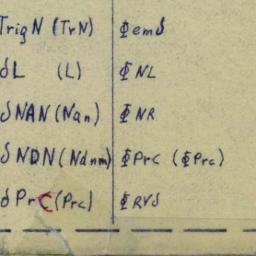 TrigN (TrN) Φemδ
δL (L) ΦNL
δNAN (Nan) ΦNR
δNDN (Ndnm) ΦPrc (ΦPrc)
δPrC (Prc) ΦRVδ